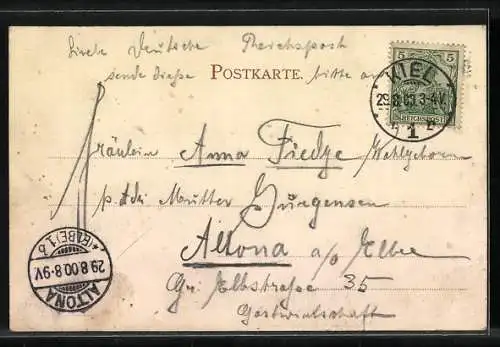 Liebe Deutsche Reichspost
sende diese bitte an
POSTKARTE.
5 5
REICHSPOST
KIEL
29.8.00.3-4V.
1
Fräulein Anna Fiedge Wohlgeboren
p. Adr Mutter Guergensen
Altona a/o Elbe
Gr. Elbstraße 35
Gastwirtschaft
ALTONA
29.8.00.8-9V.
* (ELBE) 1 b